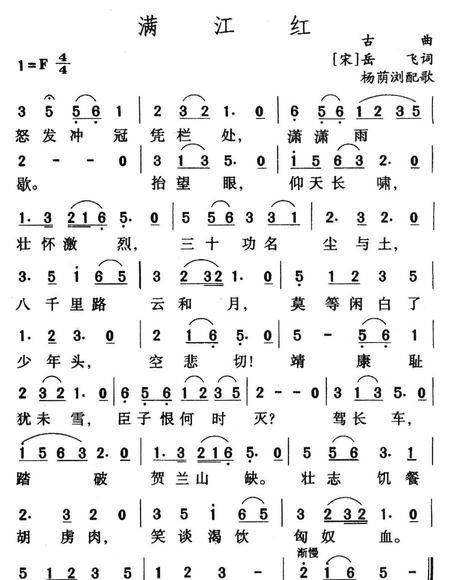 满江红
古曲
1=F 4/4
[宋]岳飞词
杨荫浏配歌
3 5 5 6 1 | 2 3 2 1· 0 | 6 5 6 1 2 3 5 |
怒发冲冠 凭栏处, 潇潇雨
2 - - 0 | 3 1 3 5· 0 | i 5 6 3 2 3· 0 |
歇。 抬望眼, 仰天长啸,
1· 3 2 1 6 5· 0 | 5 5 6 3 3 1 | 2· 3 2· 0 |
壮怀激烈, 三十功名 尘与土,
3· 5 1 6 5 | 3 2 3 2 1· 0 | 5 1 2 3 5 |
八千里路 云和月, 莫等闲白了
1· 2 3· 0 | 2 1 6 5· 0 | 5 - 5 6 1 |
少年头, 空悲切! 靖康耻
2 3 2 1· 0 | 5 6 5 6 1 2 | 2 - - 0 | 3 1 3 5· 0 |
犹未雪, 臣子恨何时灭? 驾长车,
1 5 6 3 2 3· 0 | 1· 3 2 1 6 5· 0 | 5 5 6 3 1 |
踏破 贺兰山缺。 壮志饥餐
2· 3 2· 0 | 3· 5 1 6 5 | 3 2 3 2 1· 0 |
胡虏肉, 笑谈渴饮 匈奴血。
渐慢
5 1 2 3 5 | 1· 2 3· 0 | 2· 1 6 5 - |